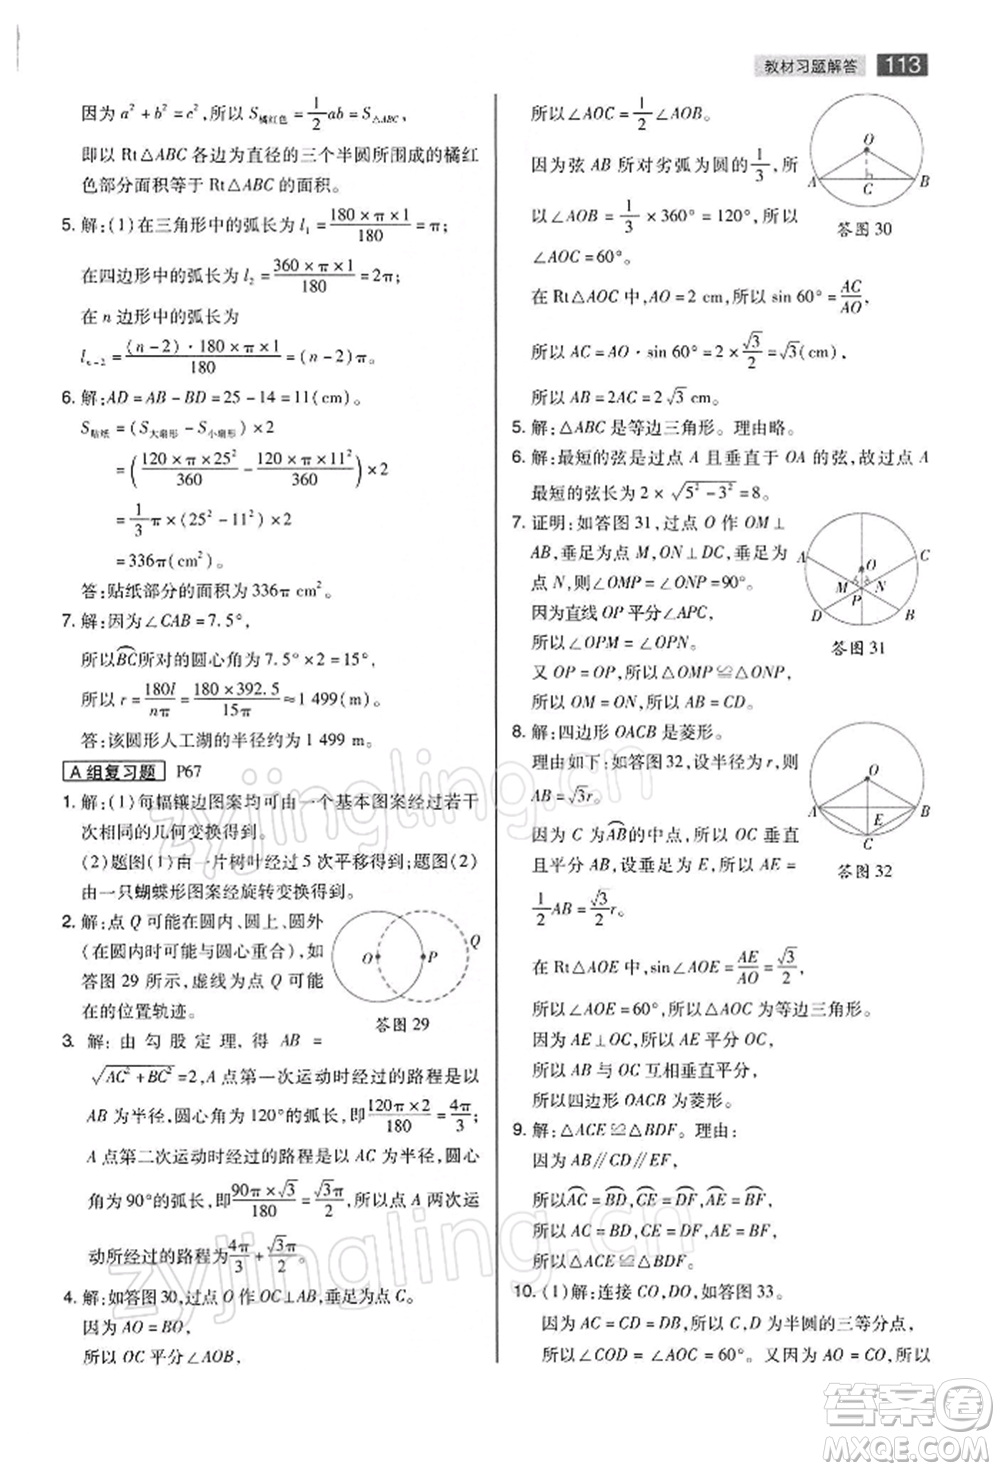 教材习题解答 113
因为 a² + b² = c²,所以 S橘红色 = 1/2 ab = S△ABC,
即以 Rt△ABC 各边为直径的三个半圆所围成的橘红
色部分面积等于 Rt△ABC 的面积。
5. 解:(1)在三角形中的弧长为 l₁ = (180 × π × 1)/180 = π;
在四边形中的弧长为 l₂ = (360 × π × 1)/180 = 2π;
在 n 边形中的弧长为
lₙ₋₂ = ((n-2)·180 × π × 1)/180 = (n-2)π。
6. 解:AD = AB - BD = 25 - 14 = 11(cm)。
S贴纸 = (S大扇形 - S小扇形) × 2
= ((120 × π × 25²)/360 - (120 × π × 11²)/360) × 2
= 1/3 π × (25² - 11²) × 2
= 336π(cm²)。
答:贴纸部分的面积为 336π cm²。
7. 解:因为∠CAB = 7.5°,
所以BC所对的圆心角为 7.5° × 2 = 15°,
所以 r = 180l/nπ = (180 × 392.5)/15π ≈ 1 499(m)。
答:该圆形人工湖的半径约为 1 499 m。
A 组复习题 P67
1. 解:(1)每幅镶边图案均可由一个基本图案经过若干
次相同的几何变换得到。
(2)题图(1)由一片树叶经过 5 次平移得到;题图(2)
由一只蝴蝶形图案经旋转变换得到。
2. 解:点 Q 可能在圆内、圆上、圆外
(在圆内时可能与圆心重合),如
答图 29 所示,虚线为点 Q 可能
在的位置轨迹。
O P Q
答图 29
3. 解:由勾股定理,得 AB =
√(AC² + BC²) = 2,A 点第一次运动时经过的路程是以
AB 为半径,圆心角为 120°的弧长,即 (120π × 2)/180 = 4π/3;
A 点第二次运动时经过的路程是以 AC 为半径,圆心角
为 90°的弧长,即 (90π × √3)/180 = √3π/2。所以 A 点经过两次运
动所经过的路程为 4π/3 + √3π/2。
4. 解:如答图 30,过点 O 作 OC⊥AB,垂足为点 C。
因为 AO = BO,
所以 OC 平分∠AOB,
所以∠AOC = 1/2 ∠AOB。
因为弦 AB 所对劣弧为圆的 1/3,所
以∠AOB = 1/3 × 360° = 120°,所以
∠AOC = 60°。
O A C B
答图 30
在 Rt△AOC 中,AO = 2 cm,所以 sin 60° = AC/AO,
所以 AC = AO·sin 60° = 2 × √3/2 = √3(cm),
所以 AB = 2AC = 2√3 cm。
5. 解:△ABC 是等边三角形。理由略。
6. 解:最短的弦是过点 A 且垂直于 OA 的弦,故过点 A
最短的弦长为 2 × √(5² - 3²) = 8。
7. 证明:如答图 31,过点 O 作 OM⊥
AB,垂足为点 M,ON⊥DC,垂足为
点 N,则∠OMP = ∠ONP = 90°。
因为直线 OP 平分∠APC,
所以∠OPM = ∠OPN。
又 OP = OP,所以△OMP≌△ONP,
所以 OM = ON,所以 AB = CD。
A C O M N P D B
答图 31
8. 解:四边形 OACB 是菱形。
理由如下:如答图 32,设半径为 r,则
AB = √3r。
因为 C 为AB的中点,所以 OC 垂直
且平分 AB,垂足为 E,所以 AE =
1/2 AB = √3/2 r。
O A B E C
答图 32
在 Rt△AOE 中,sin∠AOE = AE/AO = √3/2,
所以∠AOE = 60°,所以△AOC 为等边三角形。
因为 AE⊥OC,所以 AE 平分 OC,
所以 AB 与 OC 互相垂直平分,
所以四边形 OACB 为菱形。
9. 解:△ACE≌△BDF。理由:
因为 AB∥CD∥EF,
所以AC = BD,CE = DF,AE = BF,
所以 AC = BD,CE = DF,AE = BF,
所以△ACE≌△BDF。
10. (1)解:连接 CO,DO,如答图 33。
因为 AC = CD = BD,所以 C,D 为半圆的三等分点,
所以∠COD = ∠AOC = 60°。又因为 AO = CO,所以
zyjingling.cn
zyjingling.cn
答案圈
MXQE.COM